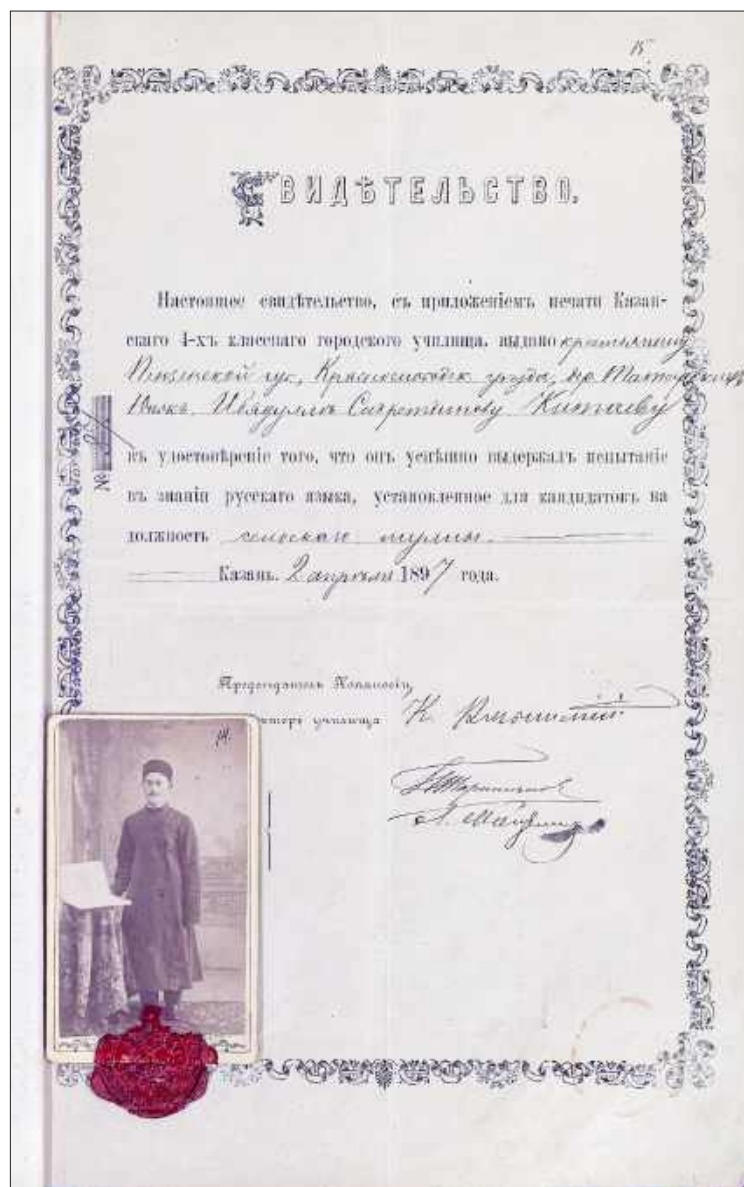 15
СВИДѢТЕЛЬСТВО.
Настоящее свидѣтельство, съ приложеніемъ печати Казан-
скаго 4-хъ класснаго городского училища, выдано крестьянину
Пензенской губ., Краснослободск. уѣзда, дер. Татарскихъ
Юнокъ
№
въ удостовѣреніе того, что онъ успѣшно выдержалъ испытаніе
въ знаніи русскаго языка, установленное для кандидатовъ на
должность сельскаго муллы.
Казань. 2 апрѣля 1897 года.
Предсѣдатель Комиссіи,
училища К.
14.